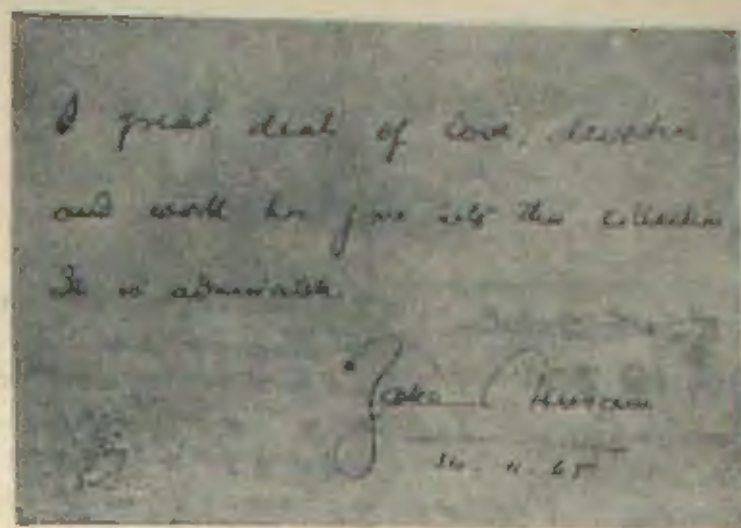 A great deal of love, devotion
and work has gone into this collection
It is admirable.
Zakir Husain
11. 65